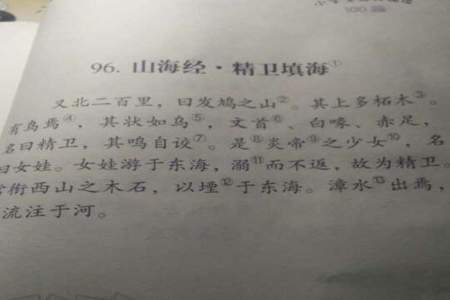 100篇
96. 山海经·精卫填海①
又北二百里，曰发鸠之山②。其上多柘木③。
有鸟焉④，其状如乌⑤，文首⑥、白喙、赤足，
名曰精卫，其鸣自詨⑦。是⑧炎帝⑨之少女⑩，名
曰女娃。女娃游于东海，溺⑪而不返，故为精卫。
常衔西山之木石，以堙⑫于东海。漳水⑬出焉，
流注于河。